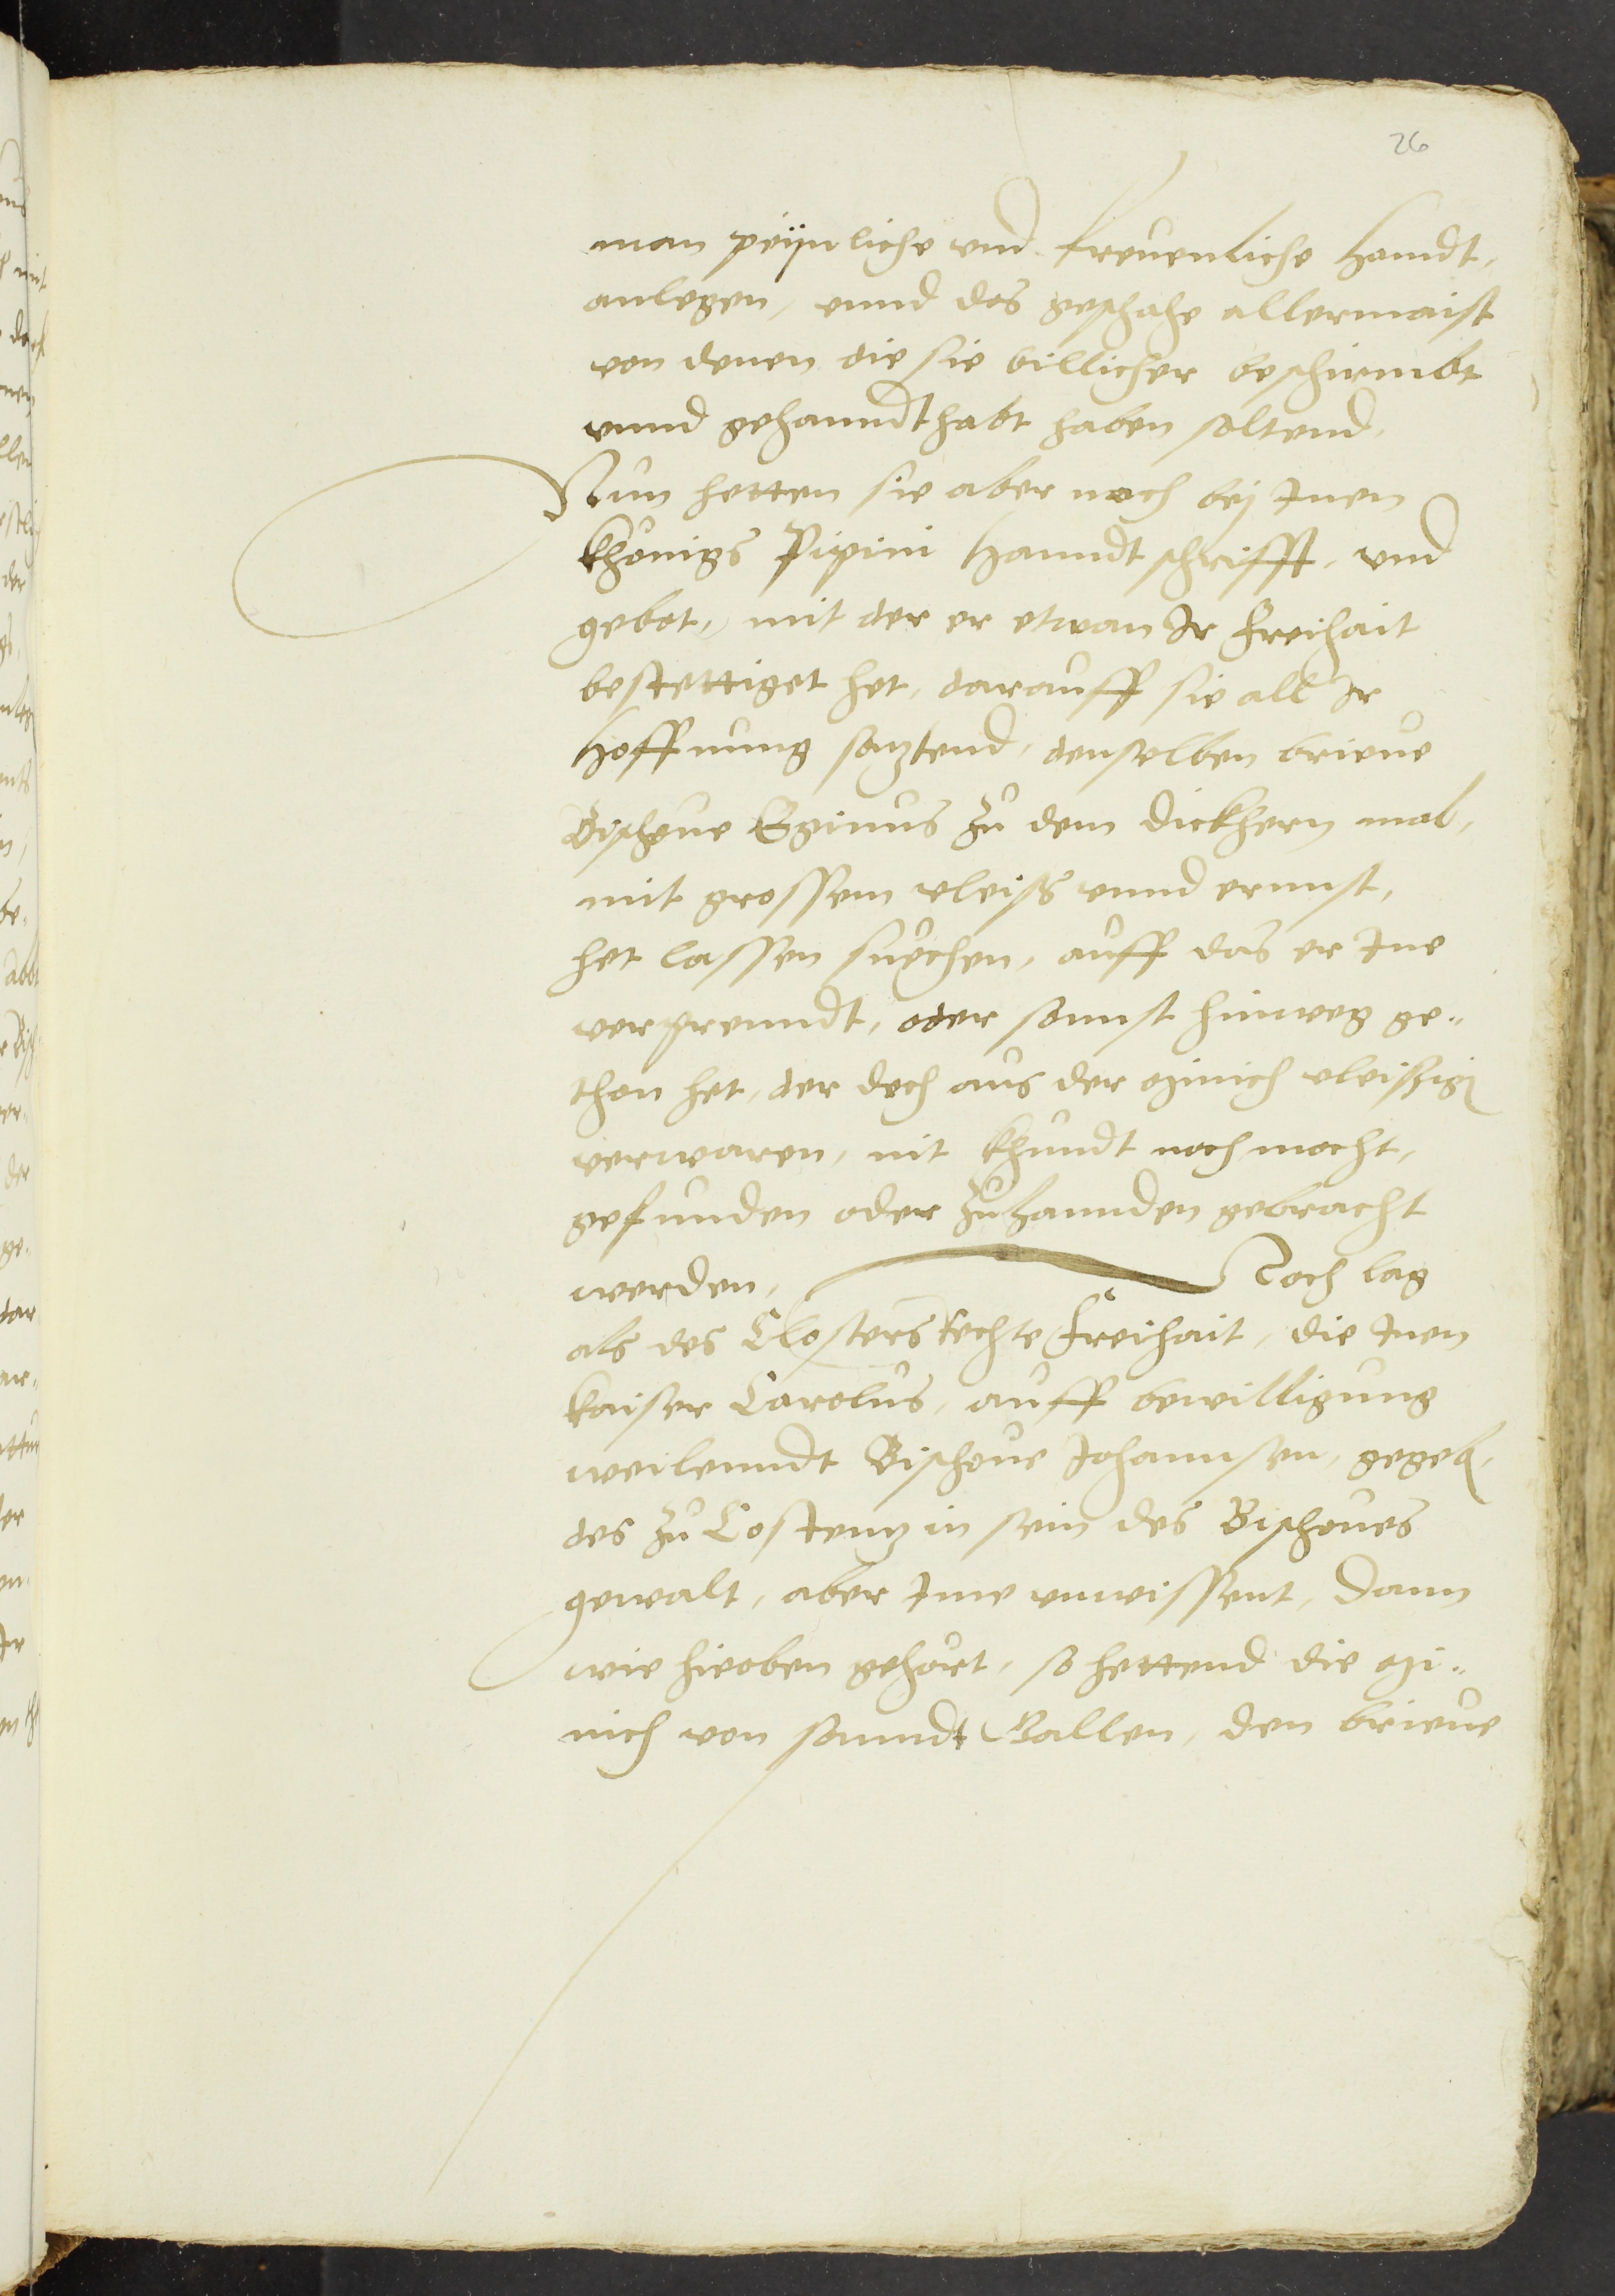 26
man peÿnliche vnd freuenliche Handt,
anlegen, vnnd das geschahe allermaist
von denen die sie billicher beschirmbt
vnnd gehanndthabt haben soltend,
Nun hetten sie aber noch beÿ Inen
Khönigs Pipini Hanndtschrifft, vnd
gebot, mit der er etwan Ir freihait
bestettiget het, darauff sie all Ir
Hoffnung saztend, denselben brieue
Bischoue Eginus zů dem dickhern mal,
mit grossem vleiss vnnd ernnst,
het lassen sůchen, auff das er Ine
verprenndt, oder sonnst hinweg ge-
thon het, der doch aus der münich vleissig
verwaren, nit khundt noch mocht,
gefunden oder zuhannden gebracht
werden, Noch lag
als des Closters rechte freihait, die Inen
kaiser Carolus, auff bewilligung
weilenndt Bischoue Johannsen, gegeben,
des zů Costenz in sein des Bischoues
gewalt, aber Ime vnwissent, dann
wie hieoben gehört, so hettend die mü-
nich von sanndt Gallen, den brieue